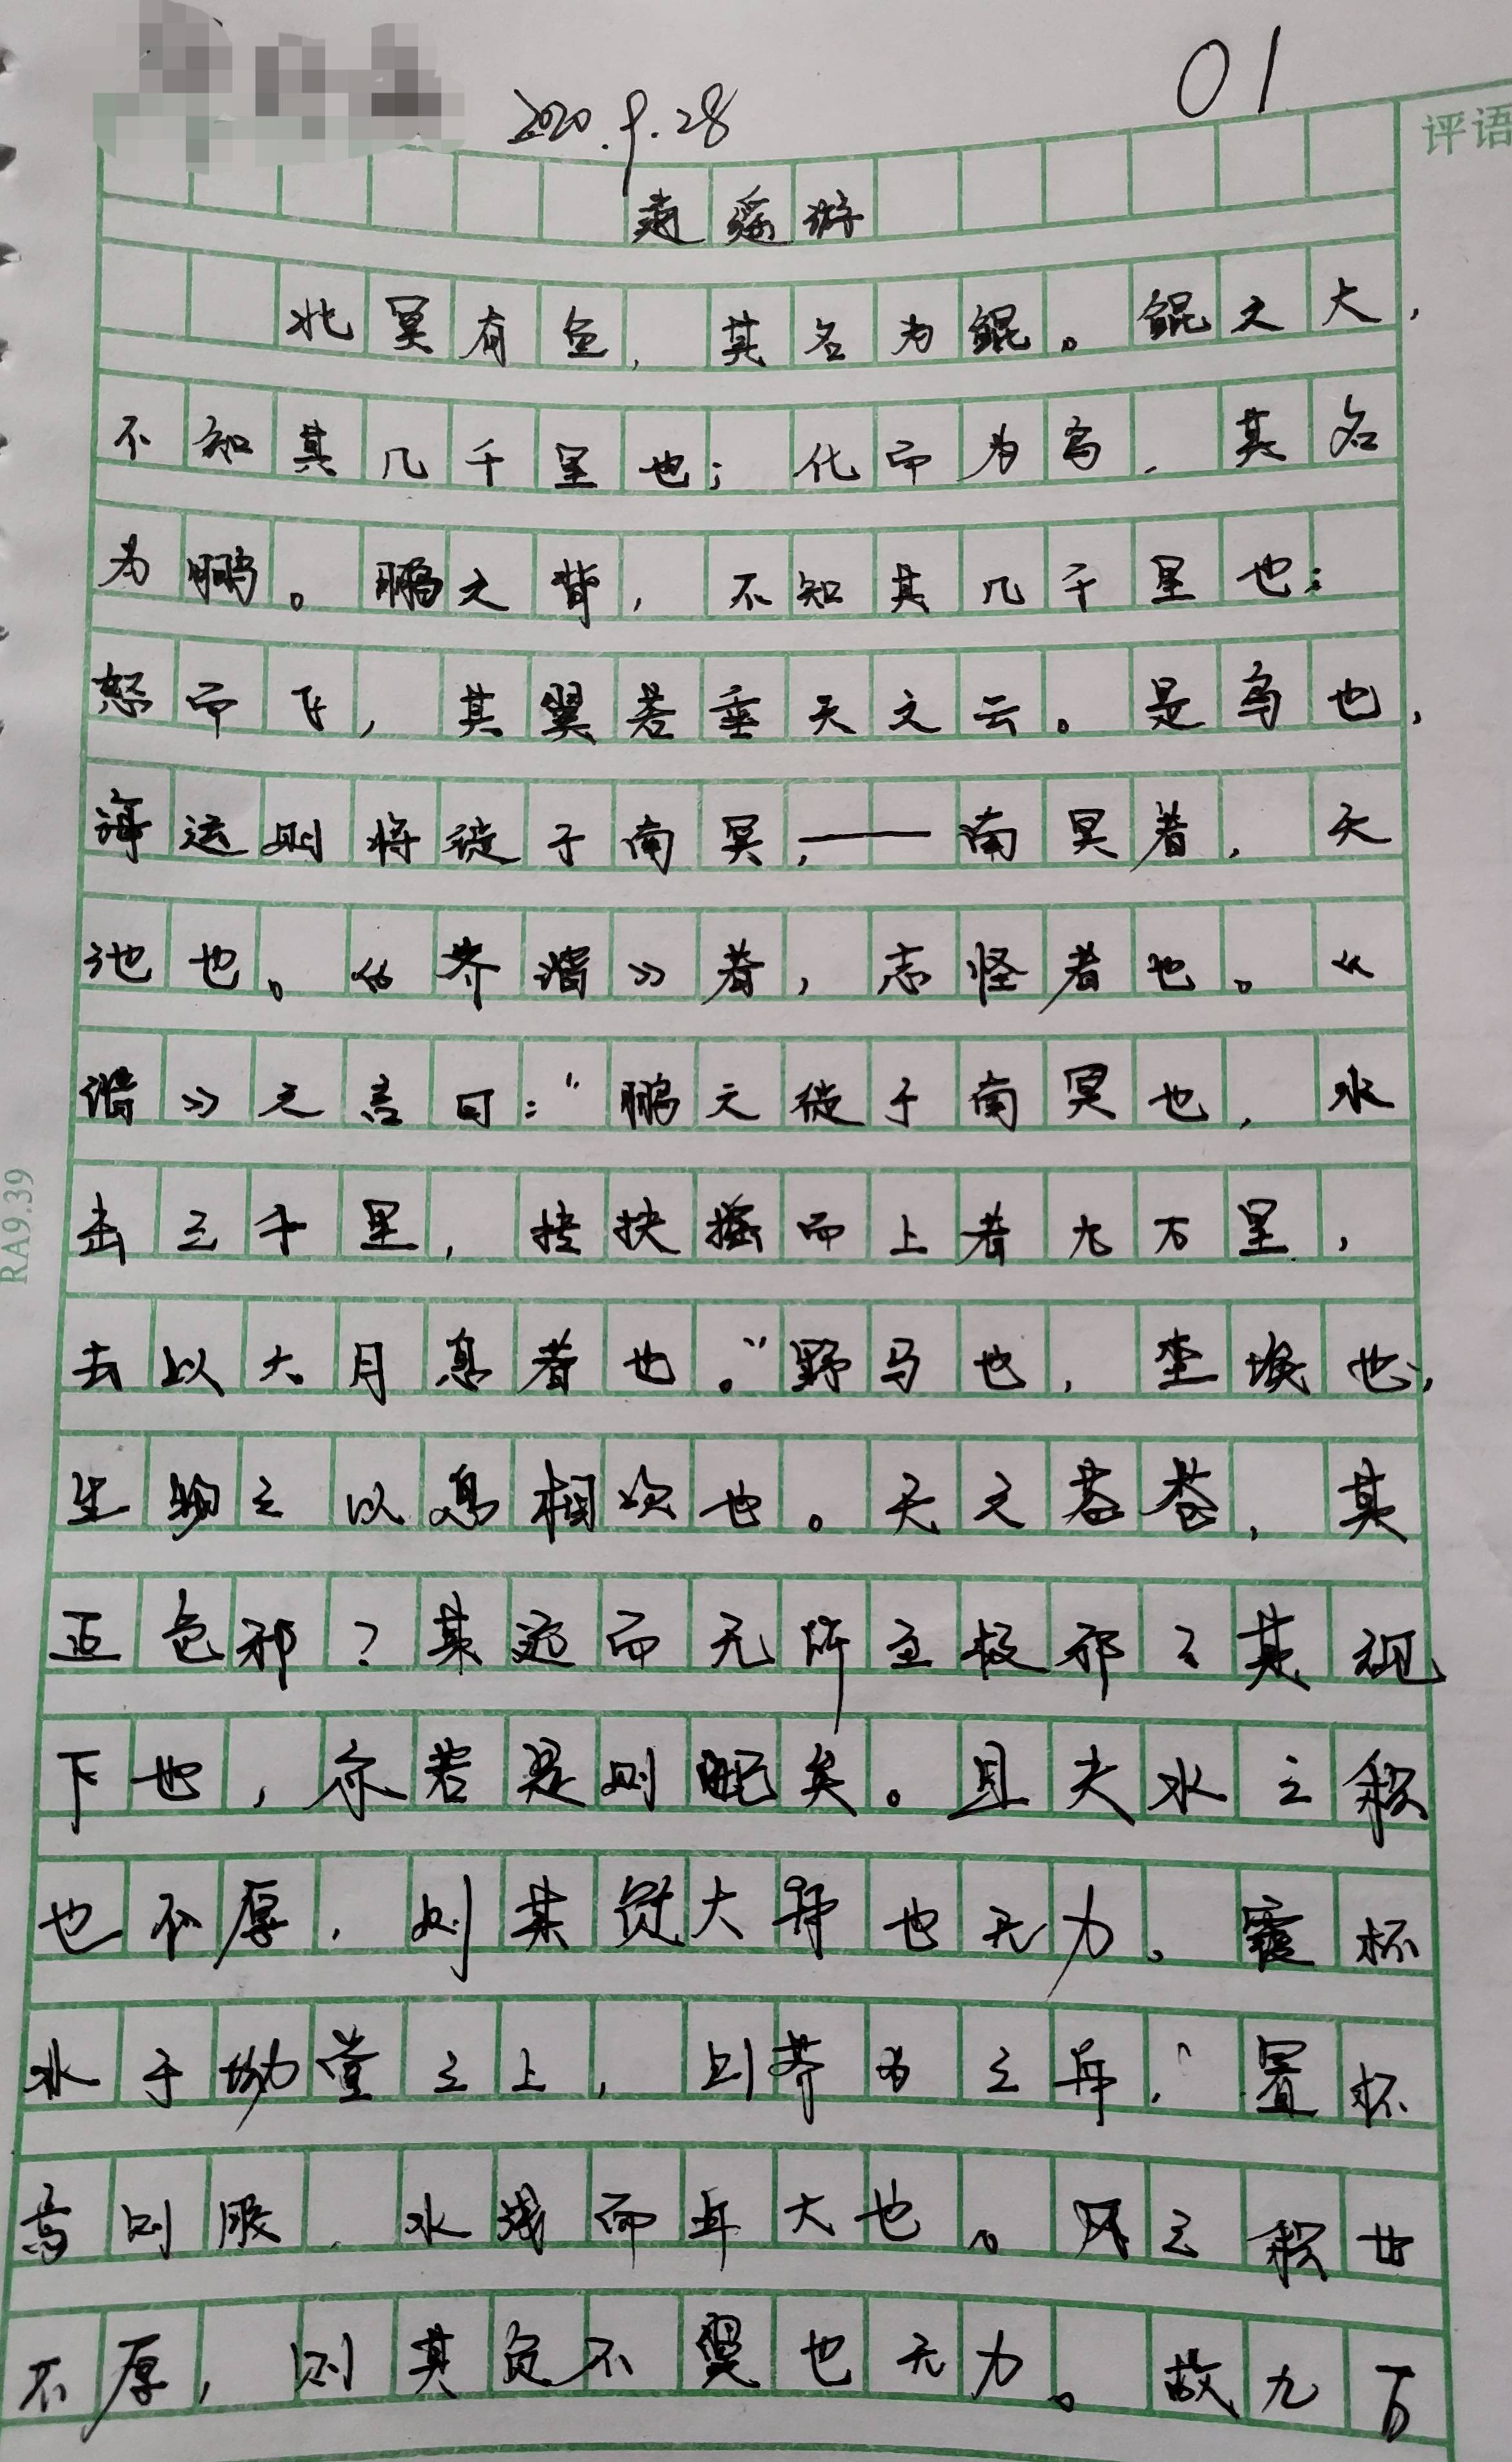 01
2020.9.28
评语
逍遥游
北冥有鱼,其名为鲲。鲲之大,
不知其几千里也;化而为鸟,其名
为鹏。鹏之背,不知其几千里也;
怒而飞,其翼若垂天之云。是鸟也,
海运则将徙于南冥,——南冥着,天
池也。《齐谐》着,志怪者也。《
谐》之言曰:“鹏之徙于南冥也,水
击三千里,抟扶摇而上者九万里,
去以六月息者也。”野马也,尘埃也,
生物之以息相吹也。天之苍苍,其
正色邪?其远而无所至极邪?其视
下也,亦若是则已矣。且夫水之积
也不厚,则其负大舟也无力。覆杯
水于坳堂之上,则芥为之舟,置杯
焉则胶,水浅而舟大也。风之积也
不厚,则其负不翼也无力。故九万
RA9.39